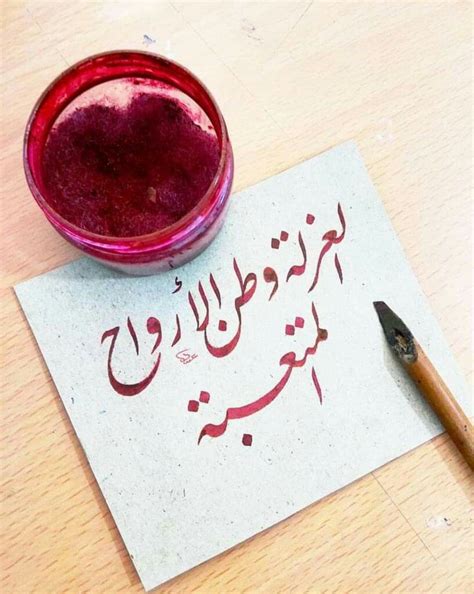 العزلة وطن الأرواح
المتعبة